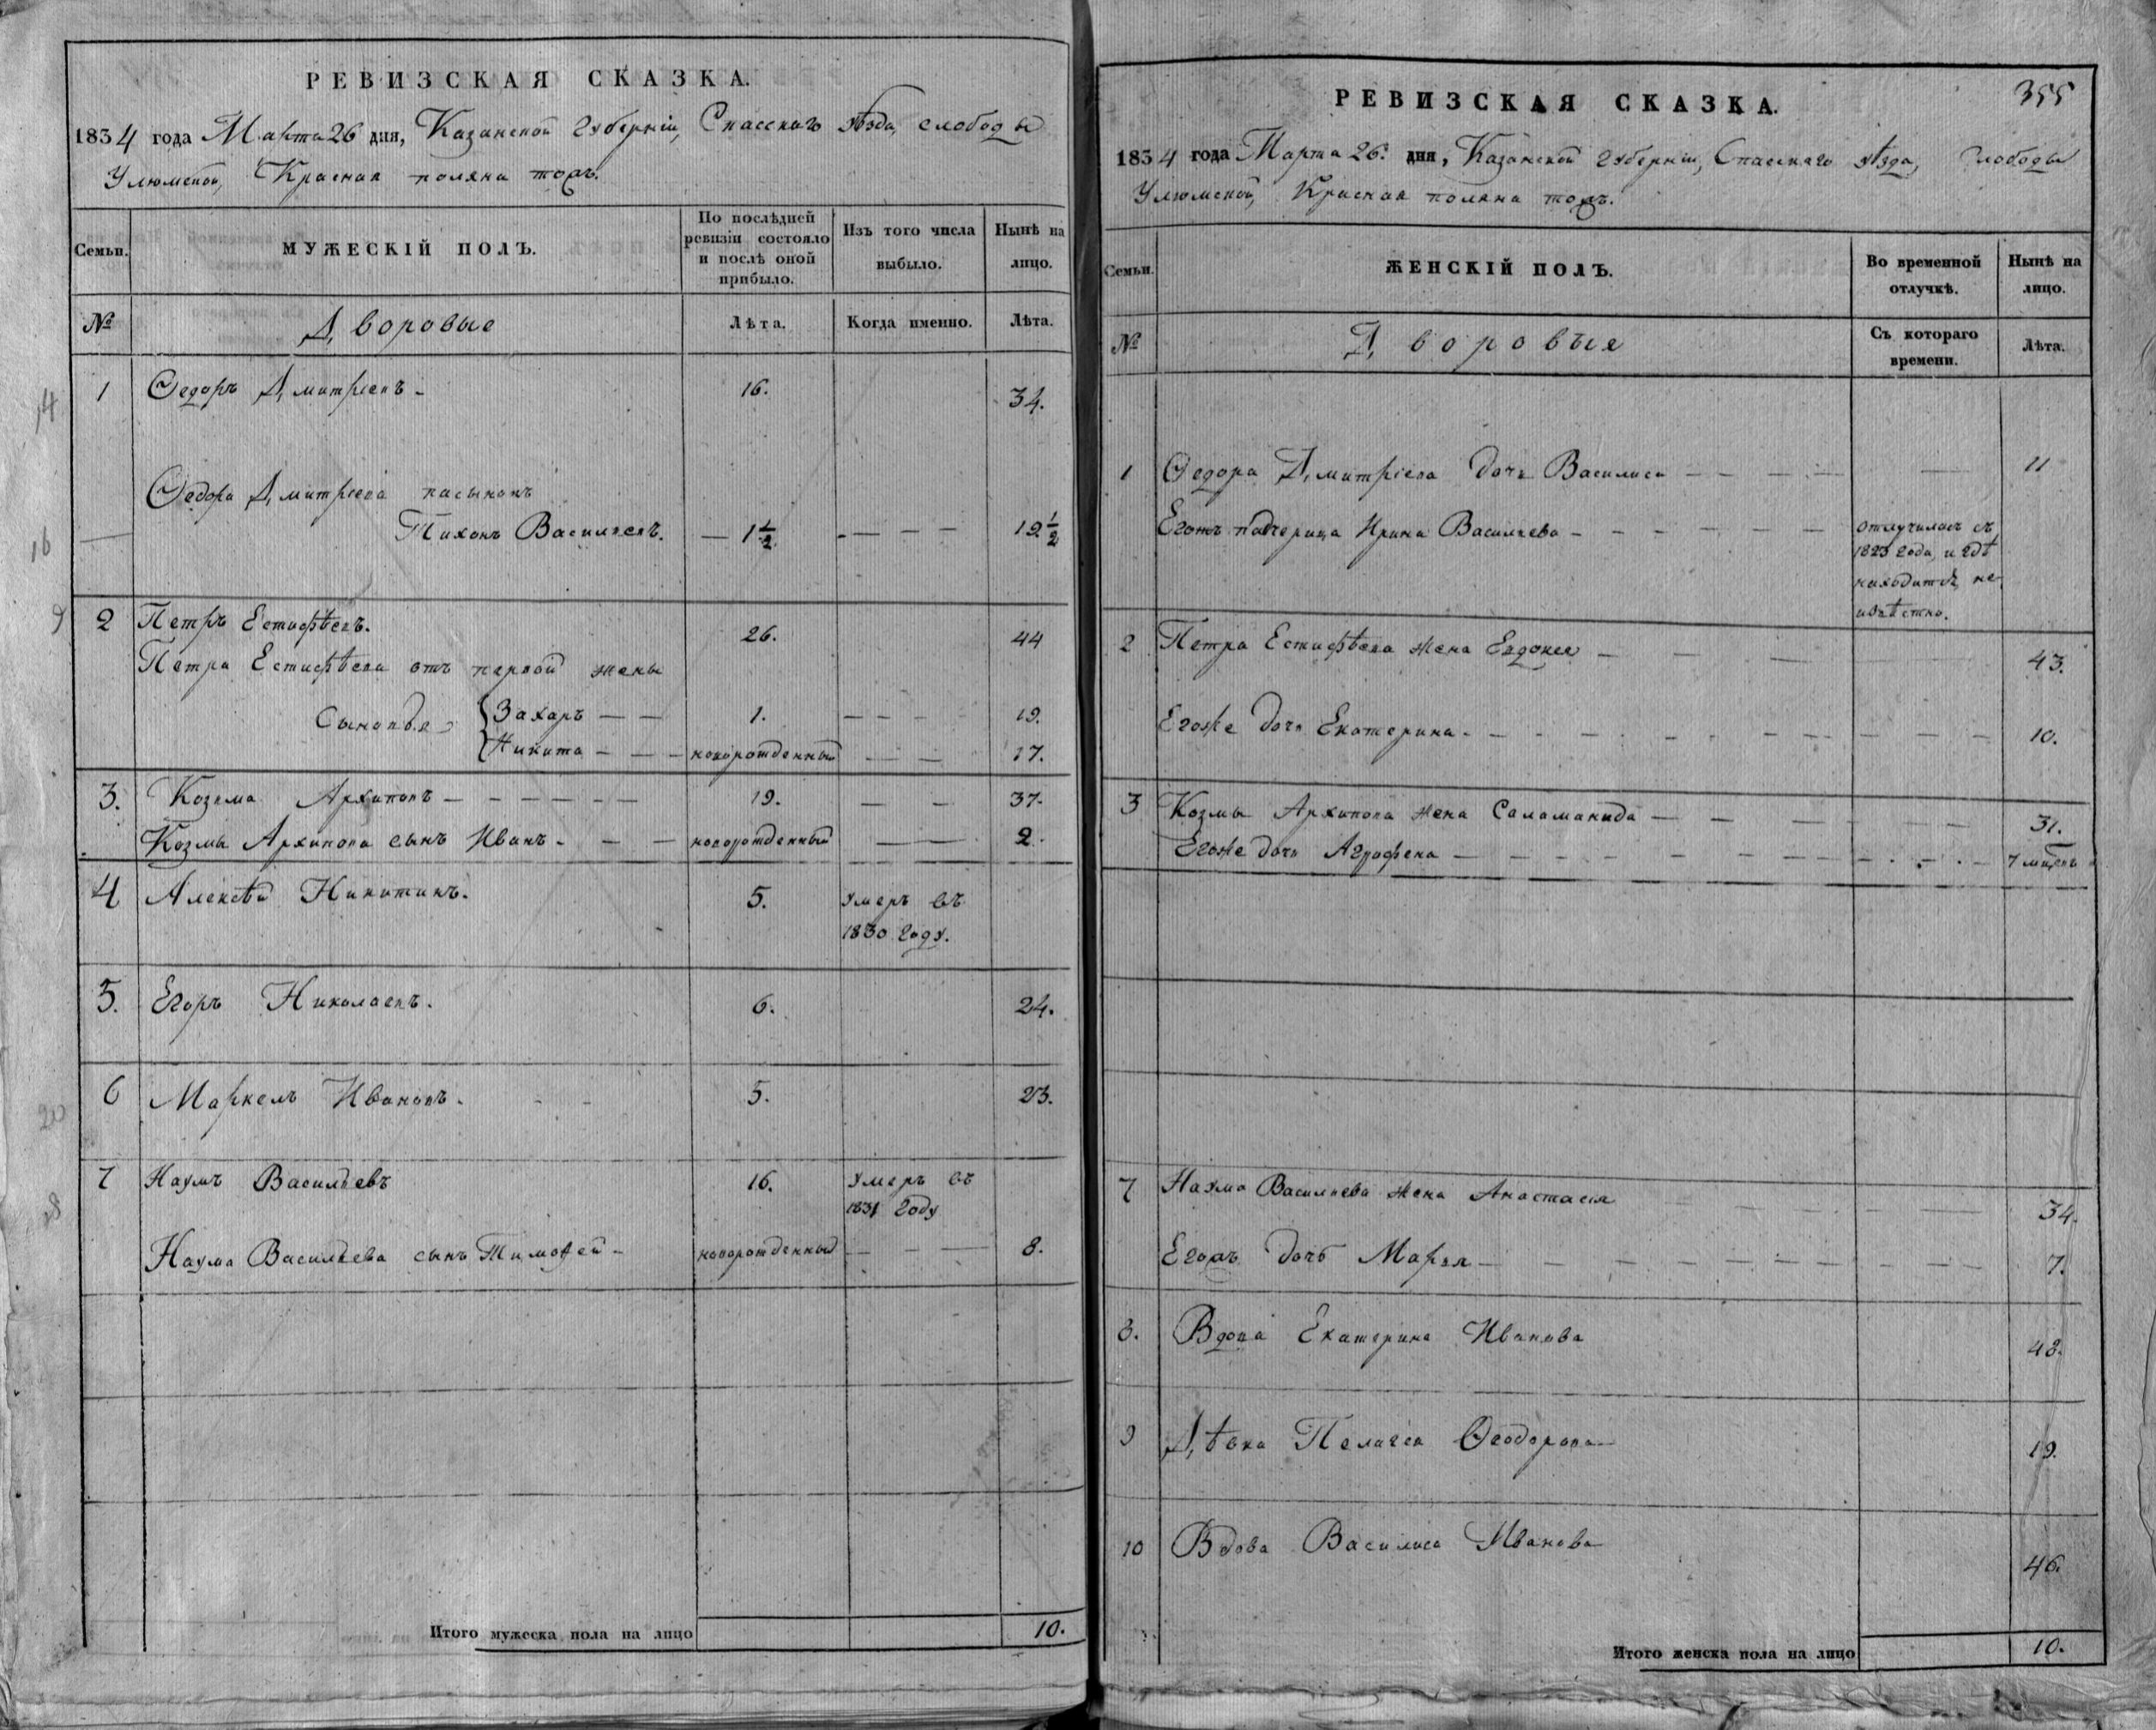 РЕВИЗСКАЯ СКАЗКА.
1834 года Марта 26 дня, Казанской губерніи, Спасскаго уѣзда, слободы
Улюмской, Красная поляна тожъ.
Семьи.
МУЖЕСКІЙ ПОЛЪ.
По послѣдней ревизіи состояло и послѣ оной прибыло.
Изъ того числа выбыло.
Нынѣ на лицо.
№ Дворовые Лѣта. Когда именно. Лѣта.
1 Ѳедоръ Дмитріевъ 16. 34.
Ѳедора Дмитріева пасынокъ
Тихонъ Васильевъ. 1 1/2 19 1/2
2 Петръ Естифѣевъ. 26. 44
Петра Естифѣева отъ первой жены
Сыновья Захаръ 1. 19.
Никита новорожденный 17.
3. Козьма Архиповъ 19. 37.
Козмы Архипова сынъ Иванъ новорожденный 2.
4 Алексѣй Никитинъ. 5. умеръ въ
1830 году.
5. Егоръ Николаевъ. 6. 24.
6 Маркелъ Ивановъ. 5. 23.
7 Наумъ Васильевъ 16. умеръ въ
1831 году
Наума Васильева сынъ Тимоѳей новорожденный 8.
Итого мужеска пола на лицо 10.
355
РЕВИЗСКАЯ СКАЗКА.
1834 года Марта 26. дня, Казанской губерніи, Спасскаго уѣзда, слободы
Улюмской, Красная поляна тожъ.
Семьи.
ЖЕНСКІЙ ПОЛЪ.
Во временной отлучкѣ.
Нынѣ на лицо.
№ Дворовые Съ котораго времени. Лѣта.
1 Ѳедора Дмитріева дочь Василиса 11
Егожъ падчерица Ирина Васильева отлучилась съ
1823 года, и гдѣ
находится, не-
извѣстно.
2 Петра Естифѣева жена Евдокея 43.
Егоже дочь Екатерина 10.
3 Козмы Архипова жена Саламанида 31.
Егоже дочь Аграфена 7 мѣсяц
7 Наума Васильева жена Анастасія 34.
Егожъ дочь Марья 7.
8. Вдова Екатерина Иванова 48.
9 Дѣвка Пелагея Ѳеодорова 19.
10 Вдова Василиса Иванова 46.
Итого женска пола на лицо 10.
14
16
9
20
28